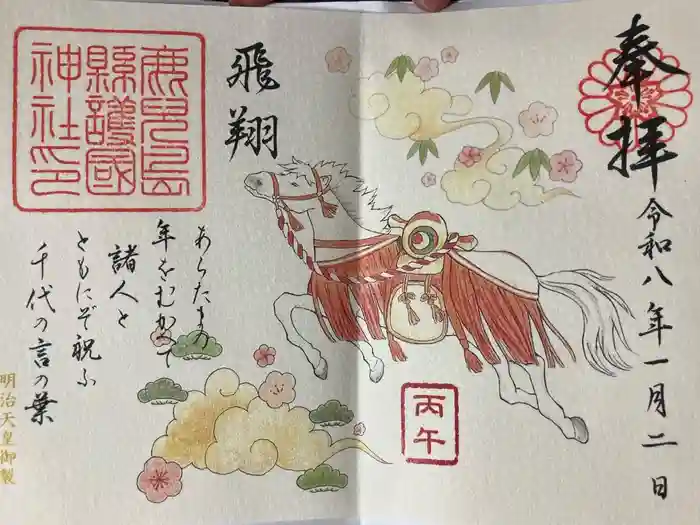 奉拝
令和八年一月二日
丙午
飛翔
鹿児島
縣護國
神社印
あらたまの
年をむかへて
諸人と
ともにぞ祝ふ
千代の言の葉
明治天皇御製